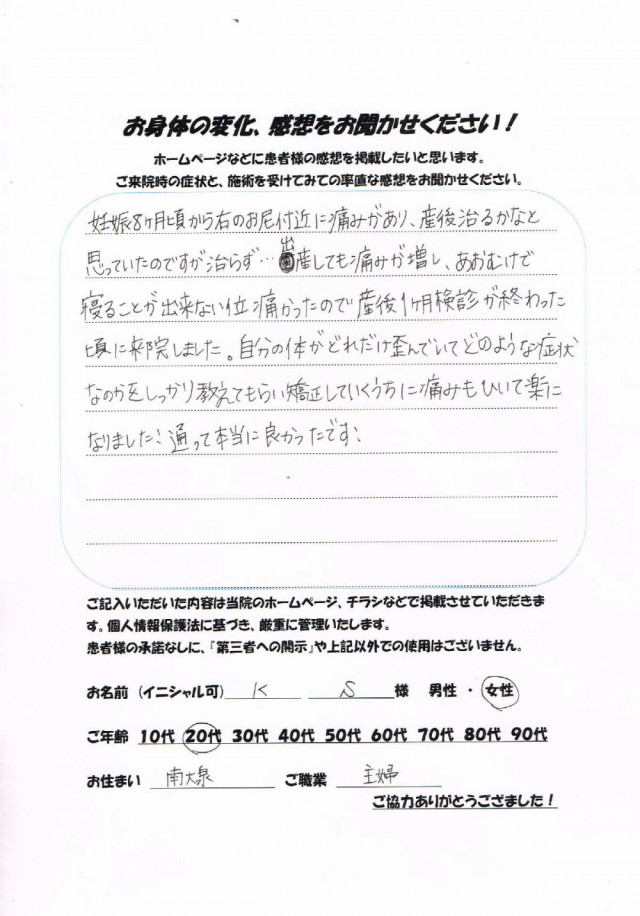 お身体の変化、感想をお聞かせください！
ホームページなどに患者様の感想を掲載したいと思います。
ご来院時の症状と、施術を受けてみての率直な感想をお聞かせください。
妊娠8ヶ月頃から右のお尻付近に痛みがあり、産後治るかなと
思っていたのですが治らず…出産しても痛みが増し、あおむけで
寝ることが出来ない位痛かったので産後1ヶ月検診が終わった
頃に来院しました。自分の体がどれだけ歪んでいてどのような症状
なのかをしっかり教えてもらい矯正していくうちに痛みもひいて楽に
なりました！通って本当に良かったです！
ご記入いただいた内容は当院のホームページ、チラシなどで掲載させていただきま
す。個人情報保護法に基づき、厳重に管理いたします。
患者様の承諾なしに、『第三者への開示』や上記以外での使用はございません。
お名前（イニシャル可） K S 様 男性 ・ 女性
ご年齢 10代 20代 30代 40代 50代 60代 70代 80代 90代
お住まい 南大泉 ご職業 主婦
ご協力ありがとうござました！